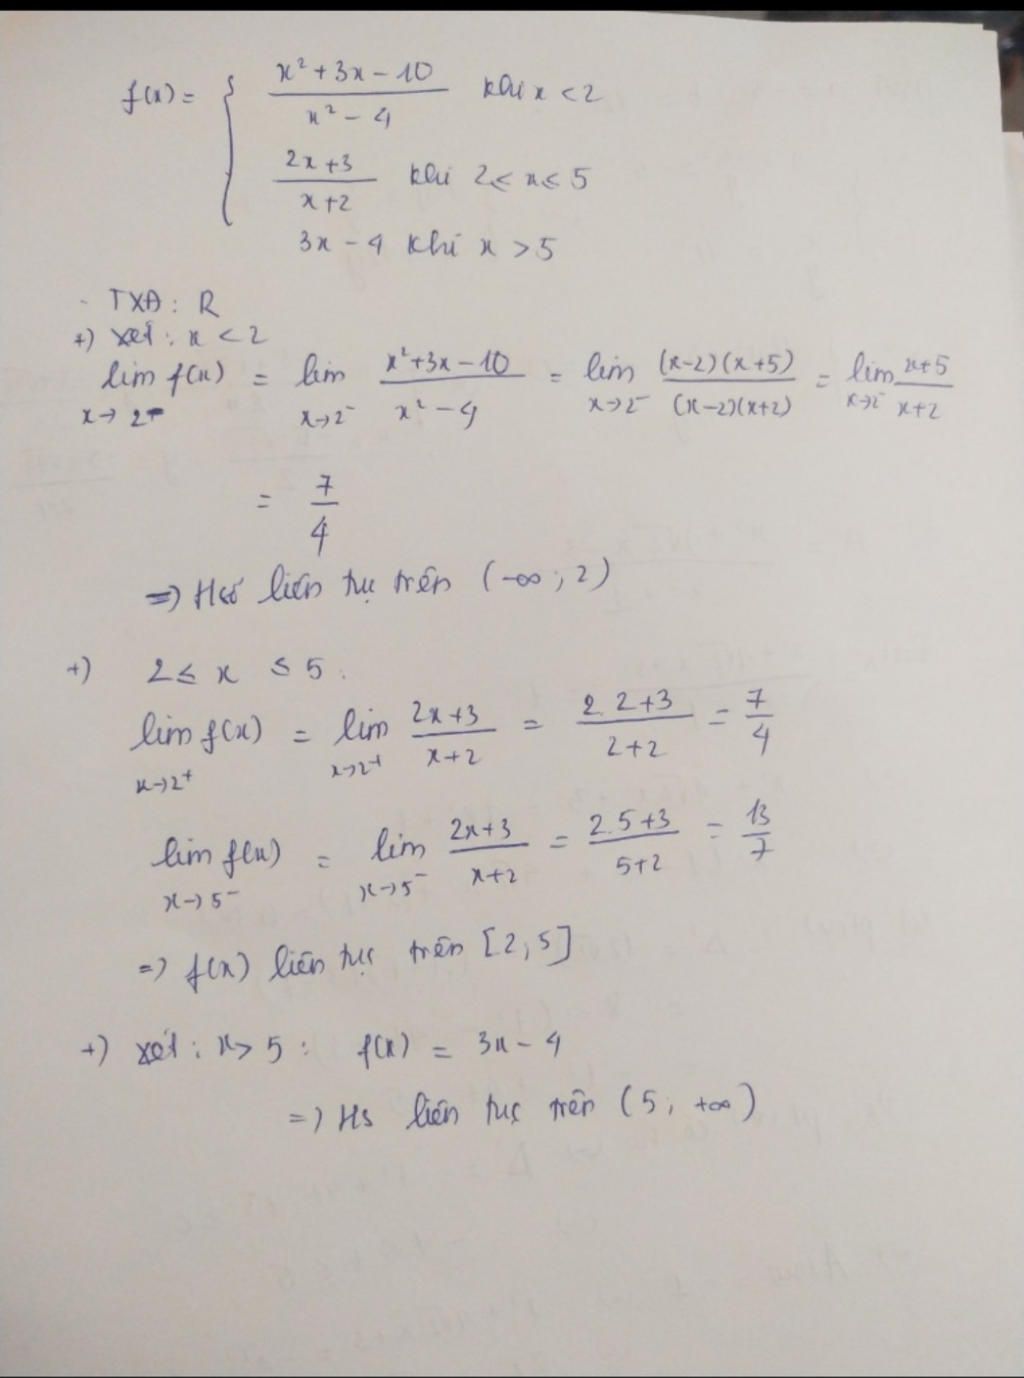 f(x) = { (x² + 3x - 10)/(x² - 4) khi x < 2
(2x + 3)/(x + 2) khi 2 ≤ x ≤ 5
3x - 4 khi x > 5
- TXĐ : R
+) xét : x < 2
lim_{x→2⁻} f(x) = lim_{x→2⁻} (x² + 3x - 10)/(x² - 4) = lim_{x→2⁻} ((x-2)(x+5))/((x-2)(x+2)) = lim_{x→2⁻} (x+5)/(x+2)
= 7/4
=> Hsố liên tụ trên (-∞ ; 2)
+) 2 ≤ x ≤ 5 :
lim_{x→2⁺} f(x) = lim_{x→2⁺} (2x+3)/(x+2) = (2.2+3)/(2+2) = 7/4
lim_{x→5⁻} f(x) = lim_{x→5⁻} (2x+3)/(x+2) = (2.5+3)/(5+2) = 13/7
=> f(x) liên tục trên [2 ; 5]
+) xét : x > 5 : f(x) = 3x - 4
=> Hs liên tục trên (5 ; +∞)